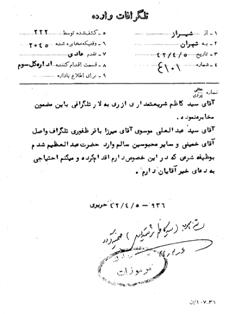 تلگرافات وارده
۱ ـ از شیراز
۵ ـ کشف‌شده توسط ۲۲۲
۲ ـ به تهران
۶ ـ وقتیکه مخابره شده ۲۰۴۵
۳ ـ تاریخ ۴۲/۴/۵
۷ ـ تقدم عادی
۴ ـ شماره ۴۱۰۱
۸ ـ قسمت اقدام کننده اداره کل سوم
۹ ـ برای اطلاع باداره
شماره
آقای سید کاظم شریعتمداری ازری به لار تلگرافی باین مضمون
مخابره نموده.
آقای سید عبدالعلی موسوی آقای میرزا باقر ظفوری تلگراف واصل
آقای خمینی و سایر محبوسین سالم وارد حضرت عبدالعظیم شدم
بوظیفه شرعی که در این خصوص دارم اقدام کرده و میکنم احتیاجی
به دعای خیر آقایان دارم.
۹۳۶ ـ ۴۲/۴/۵ حریری
مرموزات